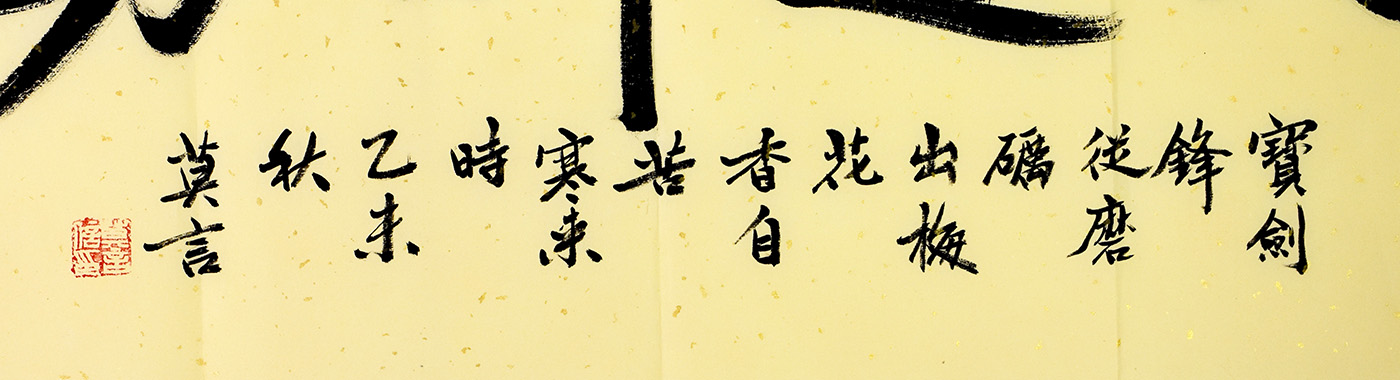 寶劍
鋒
從磨
礪
出梅
花
香自
苦
寒来
時
乙未
秋
莫言